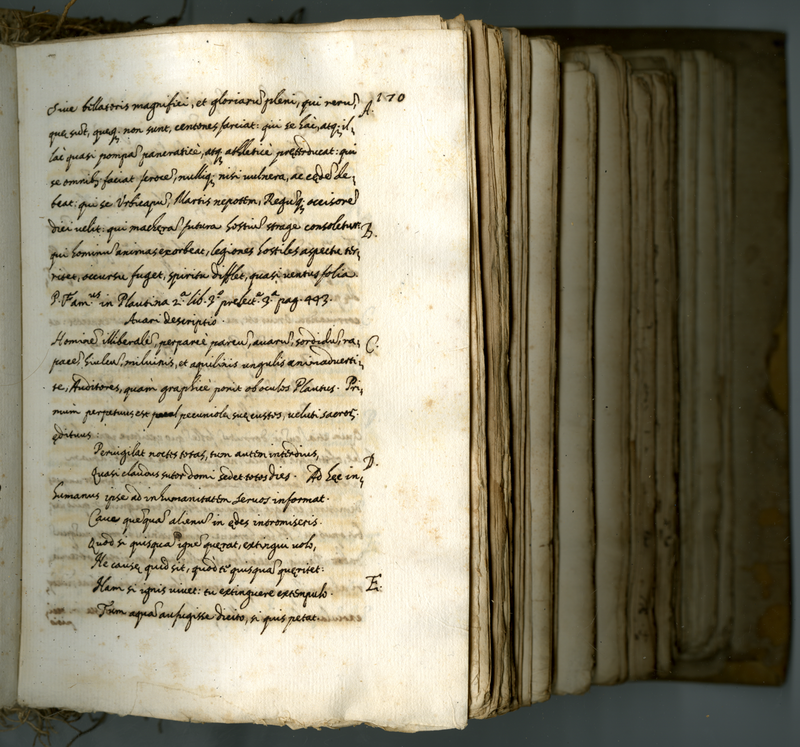 170
Sive bellatoris magnifici, et gloriarũ pleni, qui rerũ, A.
quę sũt, quęq. non sunt, centones farciat: qui se hàc, atq; il,
làc quasi pompã pancraticè, atq; athleticè
se omnib; faciat ferocẽ, nulliq; nisi vulnera, ac cędẽ de,
beat: qui se Urbicapũ, Martis nepotem, Regũq; occisorẽ
dici velit: qui machęra futura hostiũ strage consoletur: B.
qui hominũ animas exorbeat, legiones hostiles aspectu ter,
ritet, occursu fuget, spiritu difflet, quasi ventus folia.
P. Fam.us in Plautina 2.a lib. 3.o prelect.a 3.a pag. 443.
Avari descriptio.
Hominẽ illiberalẽ, perparcè parcũ, avarũ, sordidũ, ra, C.
pacẽ, hiulcũ, milvinis, et aquilinis ungulis animadverti,
te, Auditores, quàm graphicè ponit ob oculos Plautus. Pri,
mum perpetuus est pecuniolę suę custos, veluti sacror.
ędituus:
Pervigilat noctes totas, tum autem interdius,
Quasi claudus sutor domi sedet totos dies. Ad hęc in, D.
humanus ipse ad inhumanitatem servos informat.
Cave quęquã alienũ in ędes intromiseris.
Quod si quisquã ignẽ quęrat, extingui volo,
Ne causę quid sit, quòd te quisquã quęritet.
Nam si ignis vivet: tu extinguere extempulo. E.
Tum aquã aufugisse dicito, si quis petat.